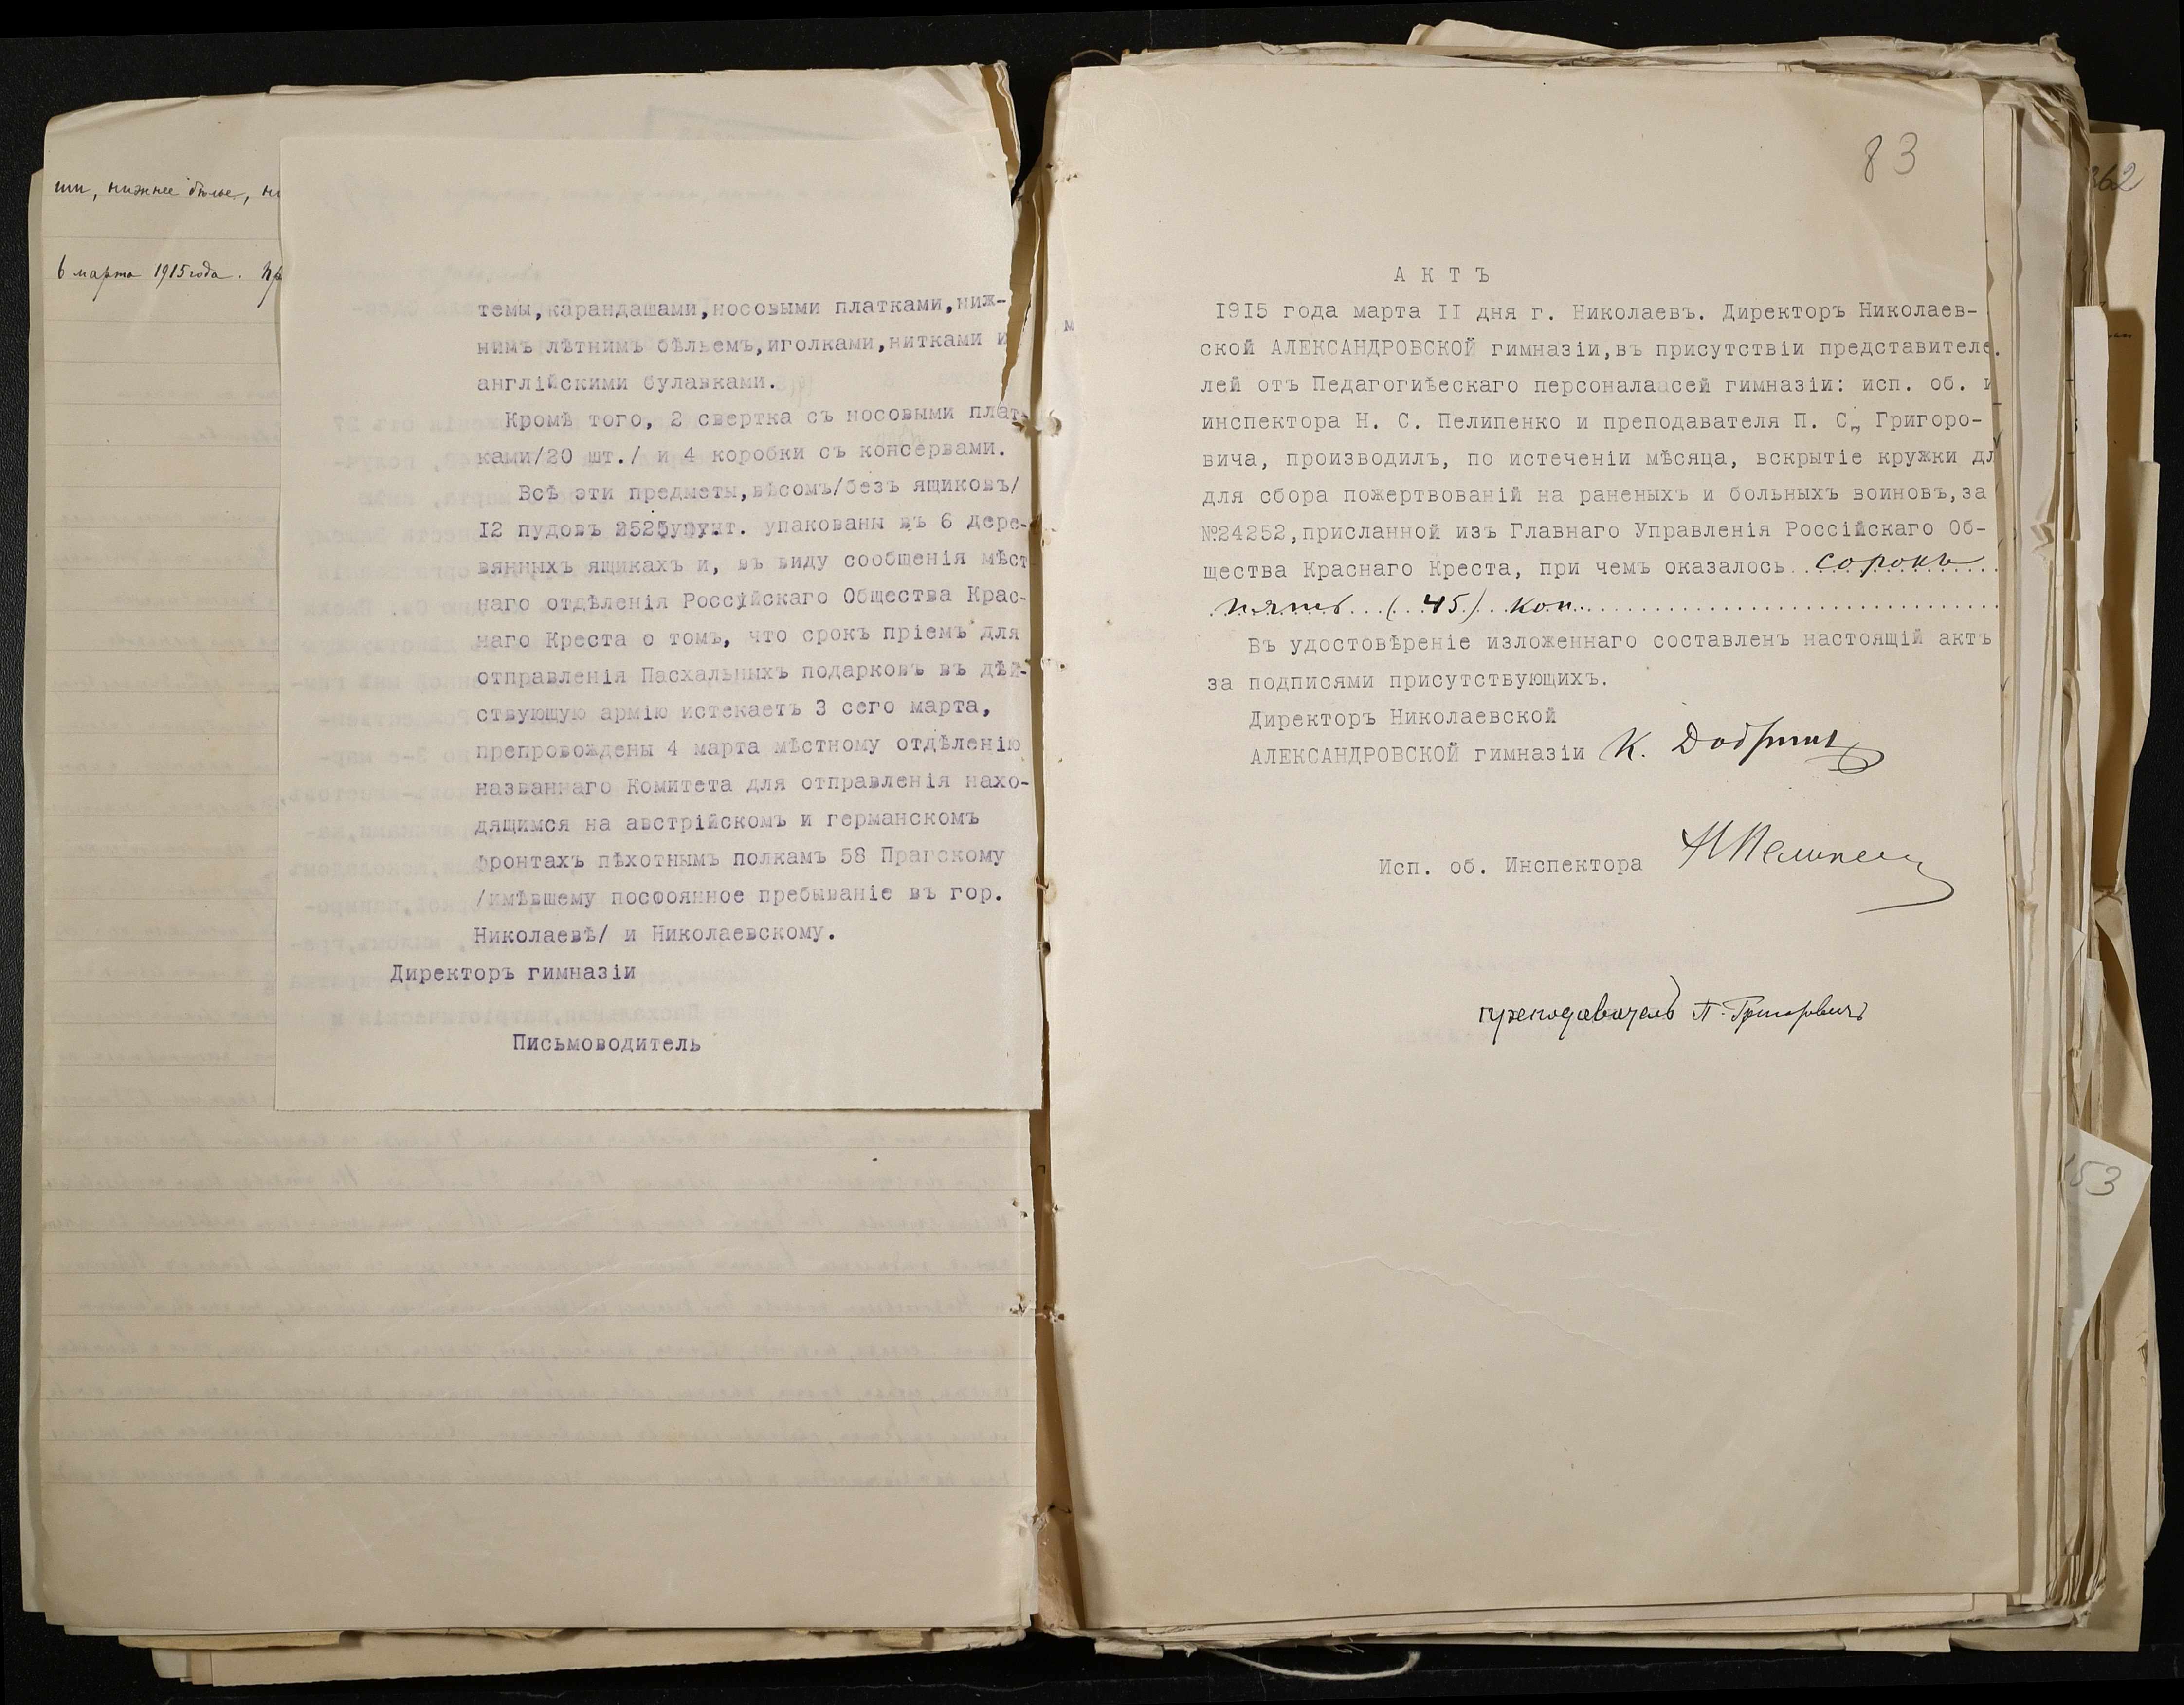 нижнее бѣлье,
6 марта 1915 года.
темы,карандашами,носовыми платками,ниж-
нимъ лѣтнимъ бѣльемъ,иголками,нитками и
англійскими булавками.
Кромѣ того, 2 свертка съ носовыми плат-
ками/20 шт./ и 4 коробки съ консервами.
Всѣ эти предметы,вѣсомъ/безъ ящиковъ/
I2 пудовъ упакованы въ 6 дере-
вянныхъ ящикахъ и, въ виду сообщенія мѣст
наго отдѣленія Россійскаго Общества Крас-
наго Креста о томъ, что срокъ пріемъ для
отправленія Пасхальныхъ подарковъ въ дѣй-
ствующую армію истекаетъ 3 сего марта,
препровождены 4 марта мѣстному отдѣленію
названнаго Комитета для отправленія нахо-
дящимся на австрійскомъ и германскомъ
фронтахъ пѣхотнымъ полкамъ 58 Прагскому
/имѣвшему посфоянное пребываніе въ гор.
Николаевѣ/ и Николаевскому.
Директоръ гимназіи
Письмоводитель
83
А К Т Ъ
I9I5 года марта II дня г. Николаевъ. Директоръ Николаев-
ской АЛЕКСАНДРОВСКОЙ гимназіи,въ присутствіи представителе.
лей отъ Педагогиѣескаго персоналаасей гимназіи: исп. об. и
инспектора Н. С. Пелипенко и преподавателя П. С„ Григоро-
вича, производилъ, по истеченіи мѣсяца, вскрытіе кружки дл
для сбора пожертвованій на раненыхъ и больныхъ воиновъ,за
№24252,присланной изъ Главнаго Управленія Россійскаго Об-
щества Краснаго Креста, при чемъ оказалось сорокъ
пять (45) коп.
Въ удостовѣреніе изложеннаго составленъ настоящій актъ
за подписями присутствующихъ.
Директоръ Николаевской
АЛЕКСАНДРОВСКОЙ гимназіи К.
Исп. об. Инспектора Н Пелипенко
преподаватель П. Григоровичъ
362
153